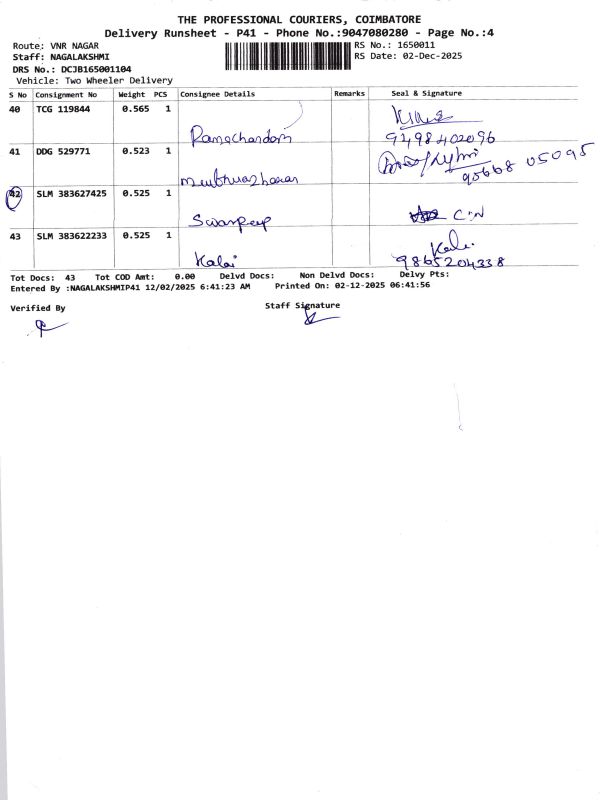 THE PROFESSIONAL COURIERS, COIMBATORE
Delivery Runsheet - P41 - Phone No.:9047080280 - Page No.:4
Route: VNR NAGAR
Staff: NAGALAKSHMI
DRS No.: DCJB165001104
Vehicle: Two Wheeler Delivery
RS No.: 1650011
RS Date: 02-Dec-2025
S No Consignment No Weight PCS Consignee Details Remarks Seal & Signature
40 TCG 119844 0.565 1
Ramachandran 9498402096
41 DDG 529771 0.523 1
95668 05095
42 SLM 383627425 0.525 1
Swaroop C.N
43 SLM 383622233 0.525 1 Kalai
Kalai 9865204338
Tot Docs: 43 Tot COD Amt: 0.00 Delvd Docs: Non Delvd Docs: Delvy Pts:
Entered By :NAGALAKSHMIP41 12/02/2025 6:41:23 AM Printed On: 02-12-2025 06:41:56
Verified By Staff Signature